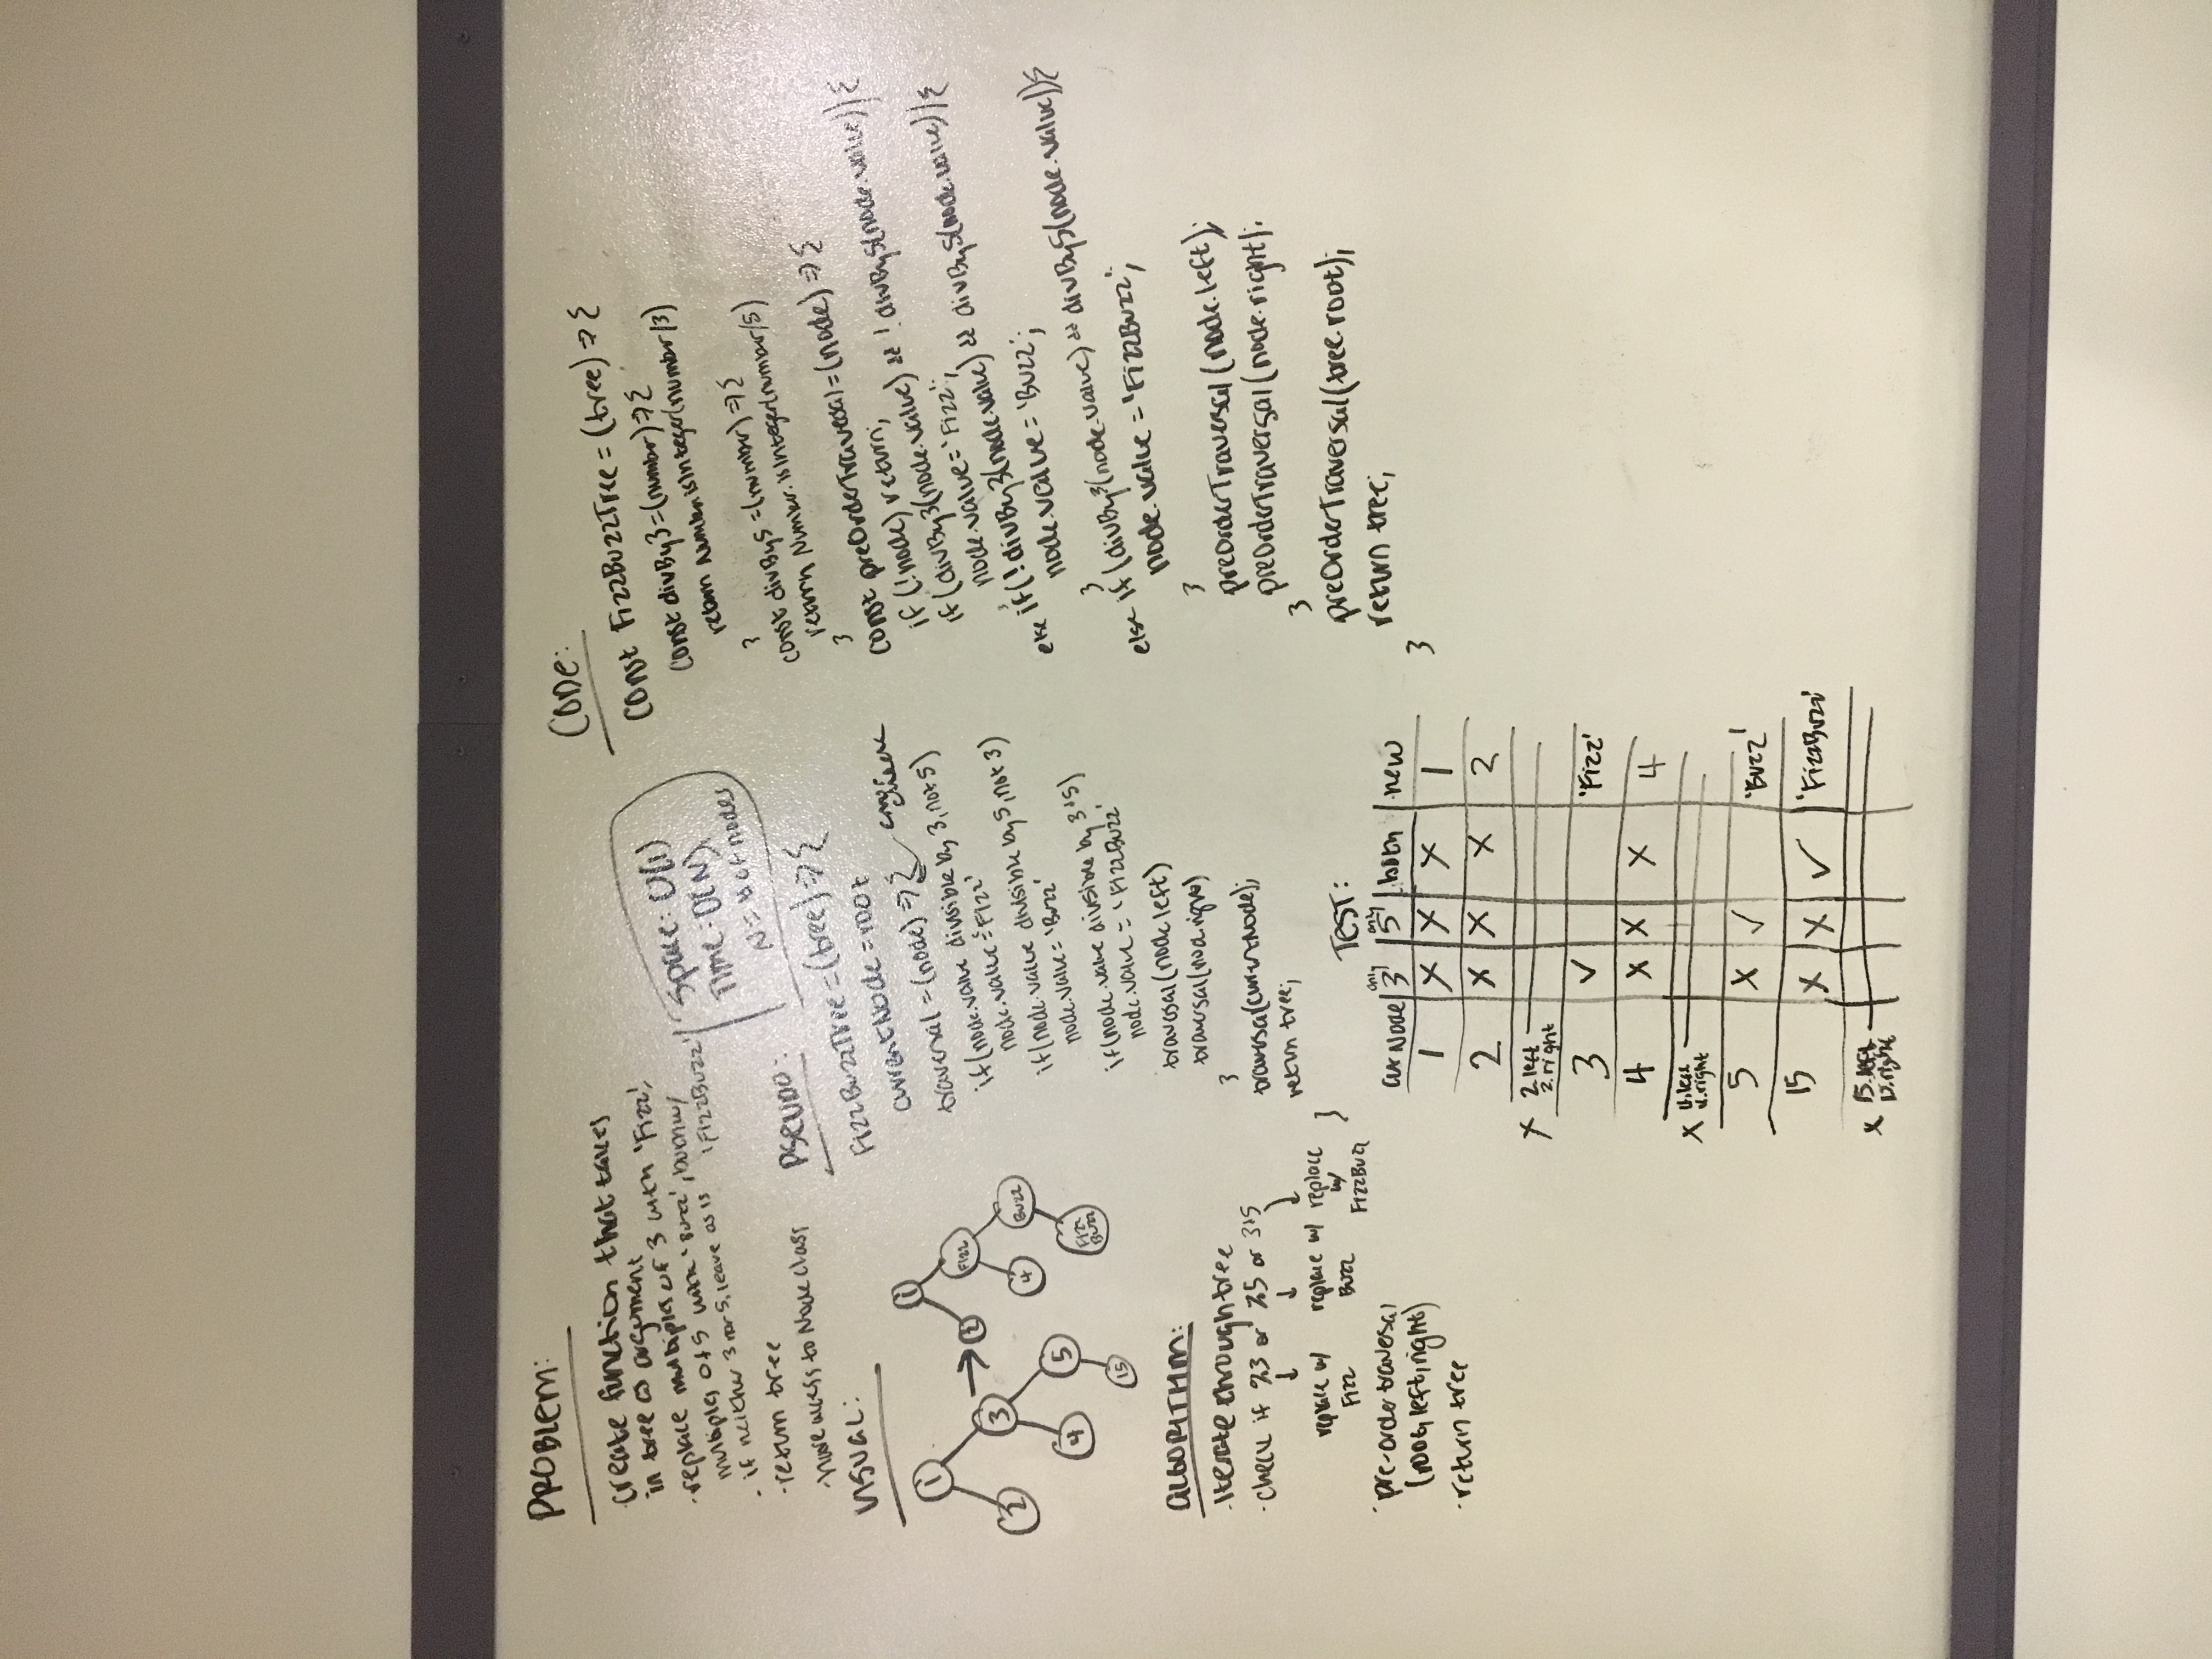 PROBLEM:
-create function that takes
in tree as argument
-replace multiples of 3 with 'Fizz',
multiples of 5 with 'Buzz', both w/
'FizzBuzz'
- if neither 3 nor 5, leave as is
-return tree
-have access to Node class
VISUAL:
1
2
3
4
5
15
→
1
2
Fizz
4
Buzz
Fizz
Buzz
ALGORITHM:
-iterate through tree
-check if %3 or %5 or 3+5
replace w/
Fizz
replace w/
Buzz
replace
w/
FizzBuzz
-pre-order traversal
(root, left, right)
-return tree
Space: O(1)
Time: O(N)
N = # of nodes
PSEUDO:
FizzBuzzTree = (tree) => {
currentNode = root
traversal = (node) => {
error
check
if(node.value divisible by 3, not 5)
node.value = 'Fizz'
if(node.value divisible by 5, not 3)
node.value = 'Buzz'
if(node.value divisible by 3+5)
node.value = 'FizzBuzz'
traversal(node.left)
traversal(node.right)
}
traversal(currentNode);
return tree;
}
TEST:
cur Node | only 3 | only 5 | both | new
1 X X X 1
2 X X X 2
X 2.left
2.right
3 ✓ 'Fizz'
4 X X X 4
X 4.left
4.right
5 X ✓ 'Buzz'
15 X X ✓ 'FizzBuzz'
X 15.left
15.right
CODE:
const FizzBuzzTree = (tree) => {
const divBy3 = (number) => {
return Number.isInteger(number/3)
}
const divBy5 = (number) => {
return Number.isInteger(number/5)
}
const preOrderTraversal = (node) => {
if (!node) return;
if (divBy3(node.value) && !divBy5(node.value)) {
node.value = 'Fizz';
}
else if (!divBy3(node.value) && divBy5(node.value)) {
node.value = 'Buzz';
}
else if (divBy3(node.value) && divBy5(node.value)) {
node.value = 'FizzBuzz';
}
preOrderTraversal(node.left);
preOrderTraversal(node.right);
}
preOrderTraversal(tree.root);
return tree;
}